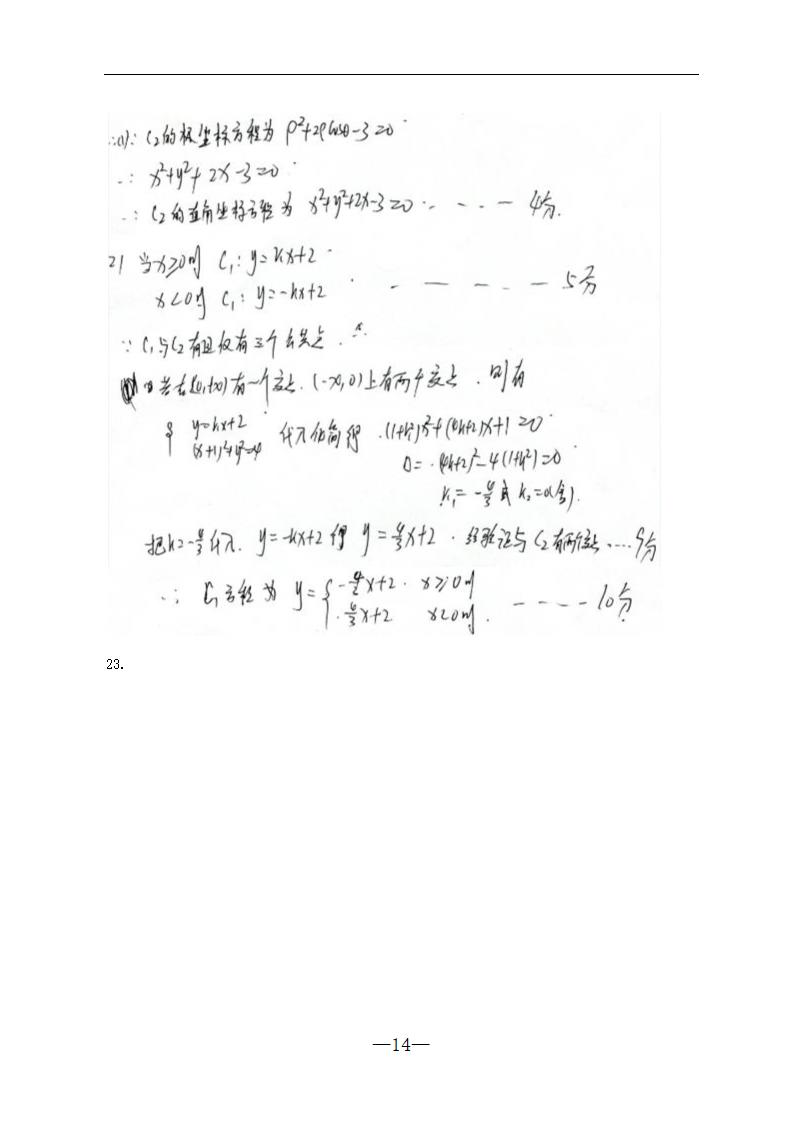 ∴(1)∵ C₂的极坐标方程为 ρ²+2ρcosθ-3=0
∴ x²+y²+2x-3=0
∴ C₂的直角坐标方程为 x²+y²+2x-3=0 ‥ - - - 4分.
2) 当x≥0时 C₁: y=kx+2
x<0时 C₁: y=-kx+2 - — - - — 5分
∵ C₁与C₂有且仅有三个公共点.
① 若在[0,+∞)有一个交点. (-∞,0)上有两个交点. 则有
{ y=kx+2
(x+1)²+y²=4 代入化简得 (1+k²)x²+(4k+2)x+1=0
Δ=(4k+2)²-4(1+k²)=0
k₁=-4/3 或 k₂=0(舍).
把k=-4/3代入. y=-kx+2得 y=4/3x+2. 经验证与C₂有两个交点....9分
∴ C₁方程为 y={ -4/3x+2. x≥0时
4/3x+2 x<0时. - - - - 10分
23.
—14—